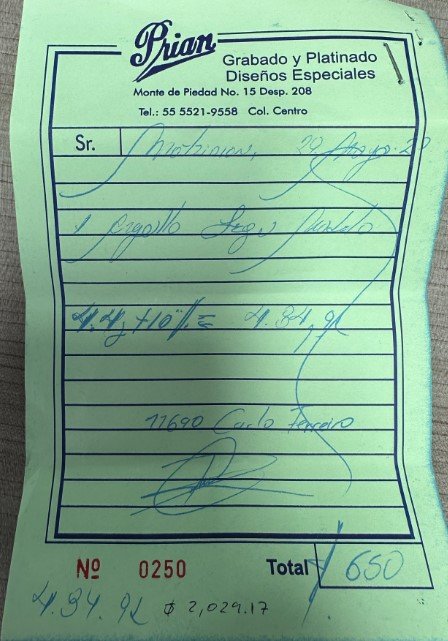 Prian
Grabado y Platinado
Diseños Especiales
Monte de Piedad No. 15 Desp. 208
Tel.: 55 5521-9558 Col. Centro
Sr. 29 Mayo.
1 Argolla Segu
4.4g +10%= 4.84 g
11690 Carlo Ferreiro
Nº 0250 Total $ 650
2,029.17